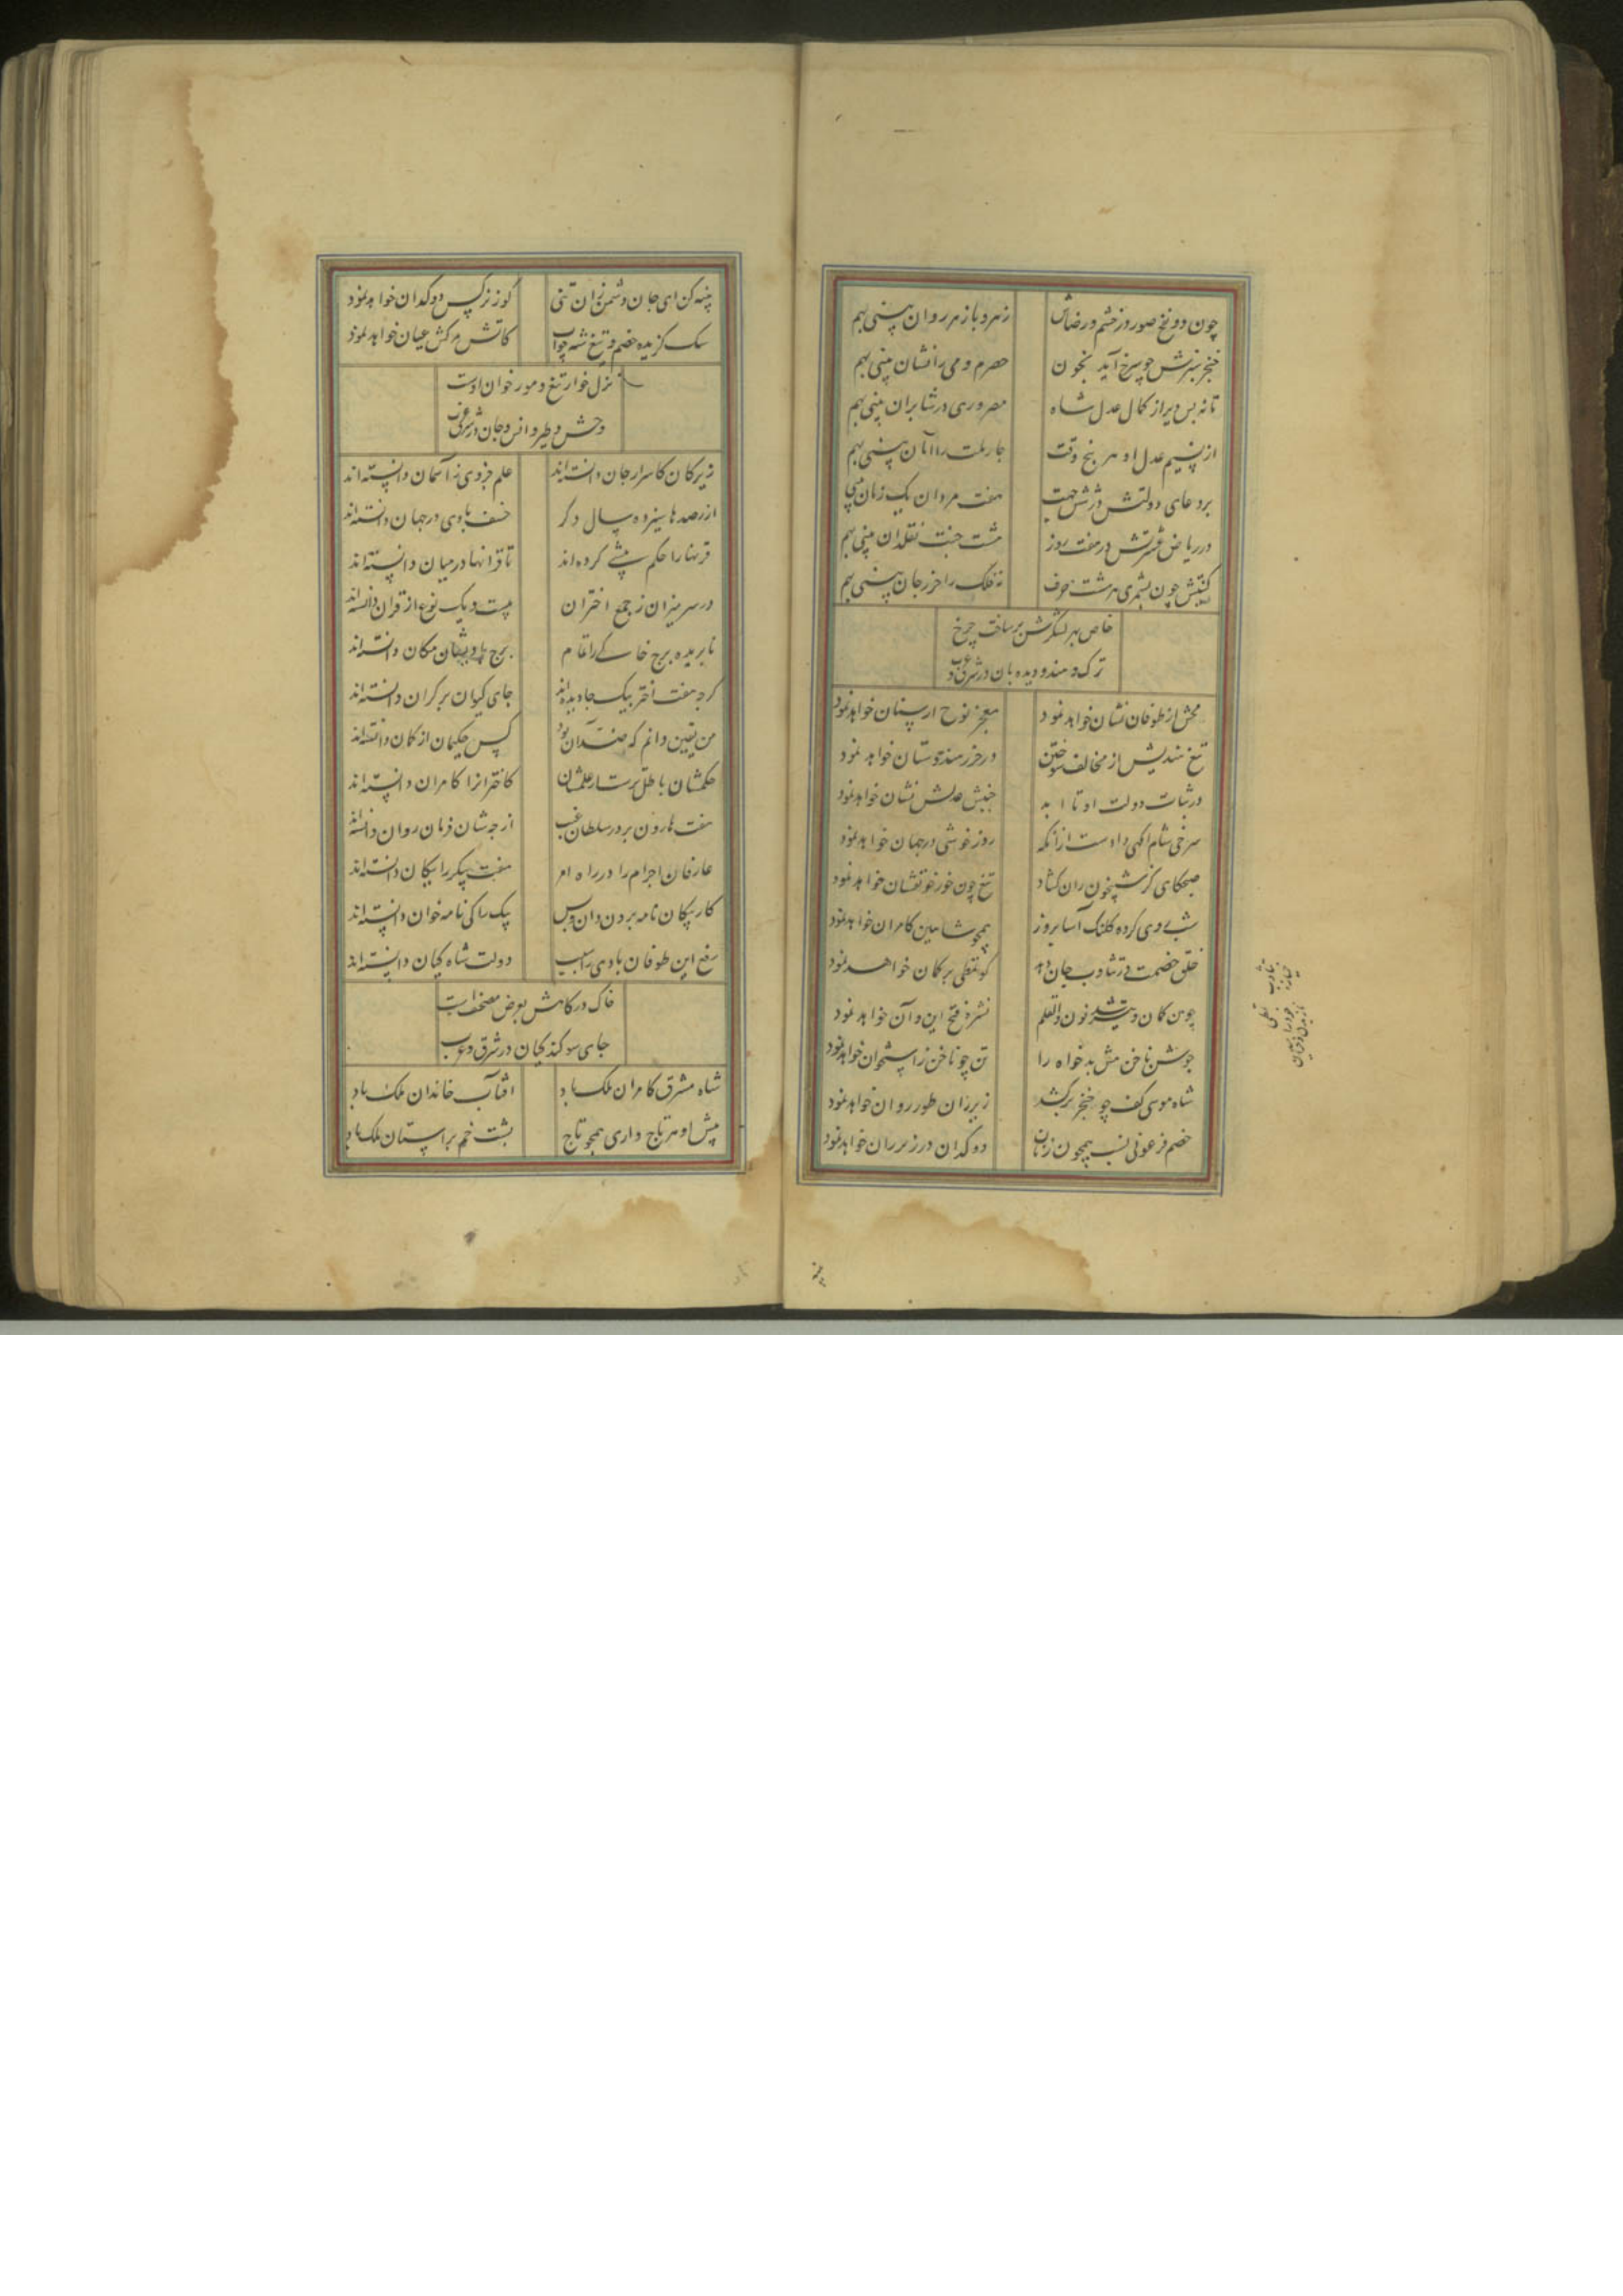 چون دو نفخ صور در خشم و رضاش زهر و پازهر روان بینی بهم
خنجر سبزش چو سرخ آید بخون حصرم و می را نشان بینی بهم
تا نه بس دیر از کمال عدل شاه مصر و ری در شابران بینی بهم
از نسیم عدل او هر پنج وقت چار ملت را امان بینی بهم
بر دعای دولتش در شش جهت هفت مردان یک زمان بینی
در ریاض عشرتش در هفت روز هشت جنت نقلدان بینی بهم
کنیتش چون بشمری هر هشت حرف نه فلک را حرز جان بینی بهم
خاص بهر لشکرش برساخت چرخ
ترک و هندو دیده بان در شرق و غرب
از طوفان نشان خواهد نمود معجز نوح از سنان خواهد نمود
تیغ هندیش از مخالف سوختن در خزر هندوستان خواهد نمود
در ثبات دولت او تا ابد جنبش عدلش نشان خواهد نمود
سرخی شام آگهی دادست از آنکه روز خوشی در جهان خواهد نمود
صبحگاهی کز شبیخون ران گشاد تیغ چون خور خونفشان خواهد نمود
شب روی کرده کلنگ آسا بروز همچو شاهین کامران خواهد نمود
خلق خصمت در تثاوب جان دهد کو تمطی بر کمان خواهد نمود
چون کمان و تیر شد نون والقلم نشره فتح این و آن خواهد نمود
جوشن ناخن منش بدخواه را تن چو ناخن ز استخوان خواهد نمود
شاه موسی کف چو خنجر برکشد زیر ران طور روان خواهد نمود
خصم فرعونی نسب همچون زنان دوکدان در زیر ران خواهد نمود
تثاوب خمیازه
پنبه کن ای جان دشمن زان تنی کو ز نرگس دوکدان خواهد نمود
سگ گزیده خصم و تیغ شه چو آب کاتش مرگش عیان خواهد نمود
نزل خوار تیغ و مور خوان اوست
وحش و طیر و انس و جان در شرق و غرب
زیرکان کاسرار جان دانسته‌اند علم جزوی ز آسمان دانسته‌اند
از رصدها سیزده سال دگر خسف بادی در جهان دانسته‌اند
قرنها را حکم پیشی کرده‌اند تا قرانها در میان دانسته‌اند
در سر میزان ز جمع اختران بیست و یک نوع از قران دانسته‌اند
نابریده برج خاکی را تمام برج بادیشان مکان دانسته‌اند
گرچه هفت اختر بیک جا دیده‌اند جای کیوان بر کران دانسته‌اند
من یقین دانم که ضد آن بود پس حکیمان از گمان دانسته‌اند
حکمشان باطل ترست از علمشان کاختران را کامران دانسته‌اند
هفت هارون بر در سلطان غیب از چه شان فرمان روان دانسته‌اند
عارفان اجرام را در راه امر هفت پیکر را پیکان دانسته‌اند
کار پیکان نامه بردن دان و بس پیک را کی نامه خوان دانسته‌اند
رفع این طوفان بادی را سبب دولت شاه کیان دانسته‌اند
خاک درگاهش بعرض مصحف است
جای سوگند کیان در شرق و غرب
شاه مشرق کامران ملک باد آفتاب خاندان ملک باد
پیش او هر تاج داری همچو تاج پشت خم بر آستان ملک باد